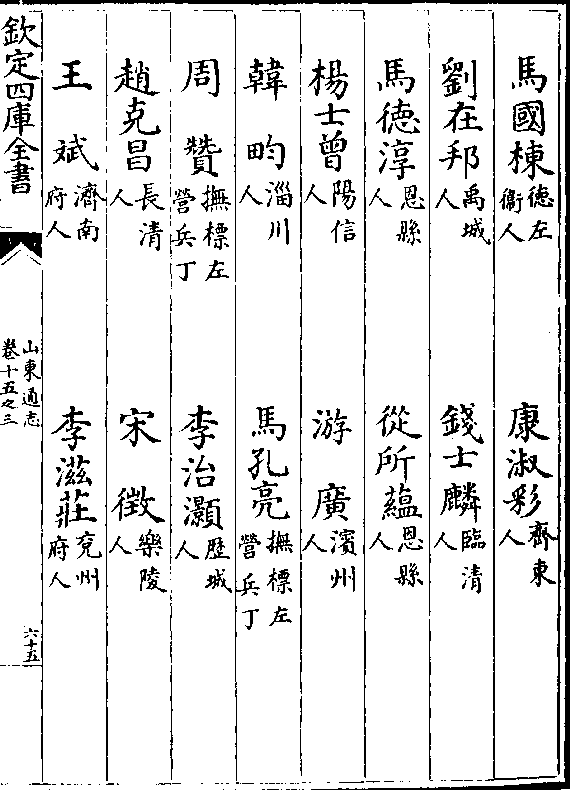 馬國棟德左衞人　康淑彩齊東人
劉在邦禹城人　錢士麟臨清人
馬德淳恩縣人　從所蘊恩縣人
楊士曾陽信人　游廣濱州人
韓畇淄川人　馬孔亮撫標左營兵丁
周贊撫標左營兵丁　李治灝歷城人
趙克昌長清人　宋徵樂陵人
王斌濟南府人　李滋莊兖州府人
欽定四庫全書
山東通志
卷十五之三
六十五